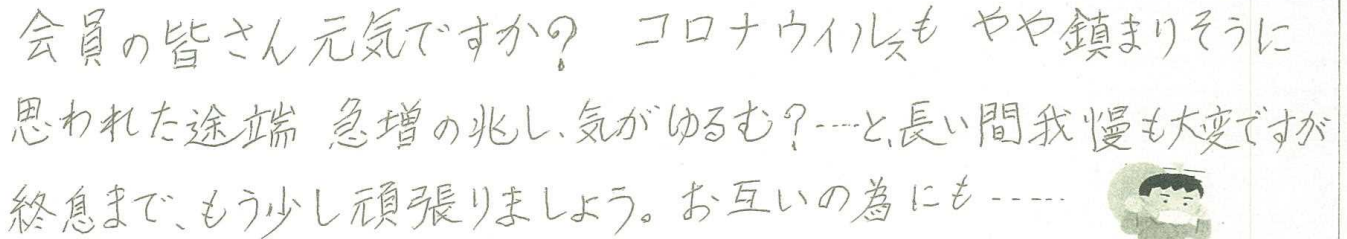 会員の皆さん元気ですか？ コロナウィルスも やや鎮まりそうに
思われた途端 急増の兆し、気がゆるむ？……と、長い間我慢も大変ですが
終息まで、もう少し頑張りましょう。お互いの為にも……